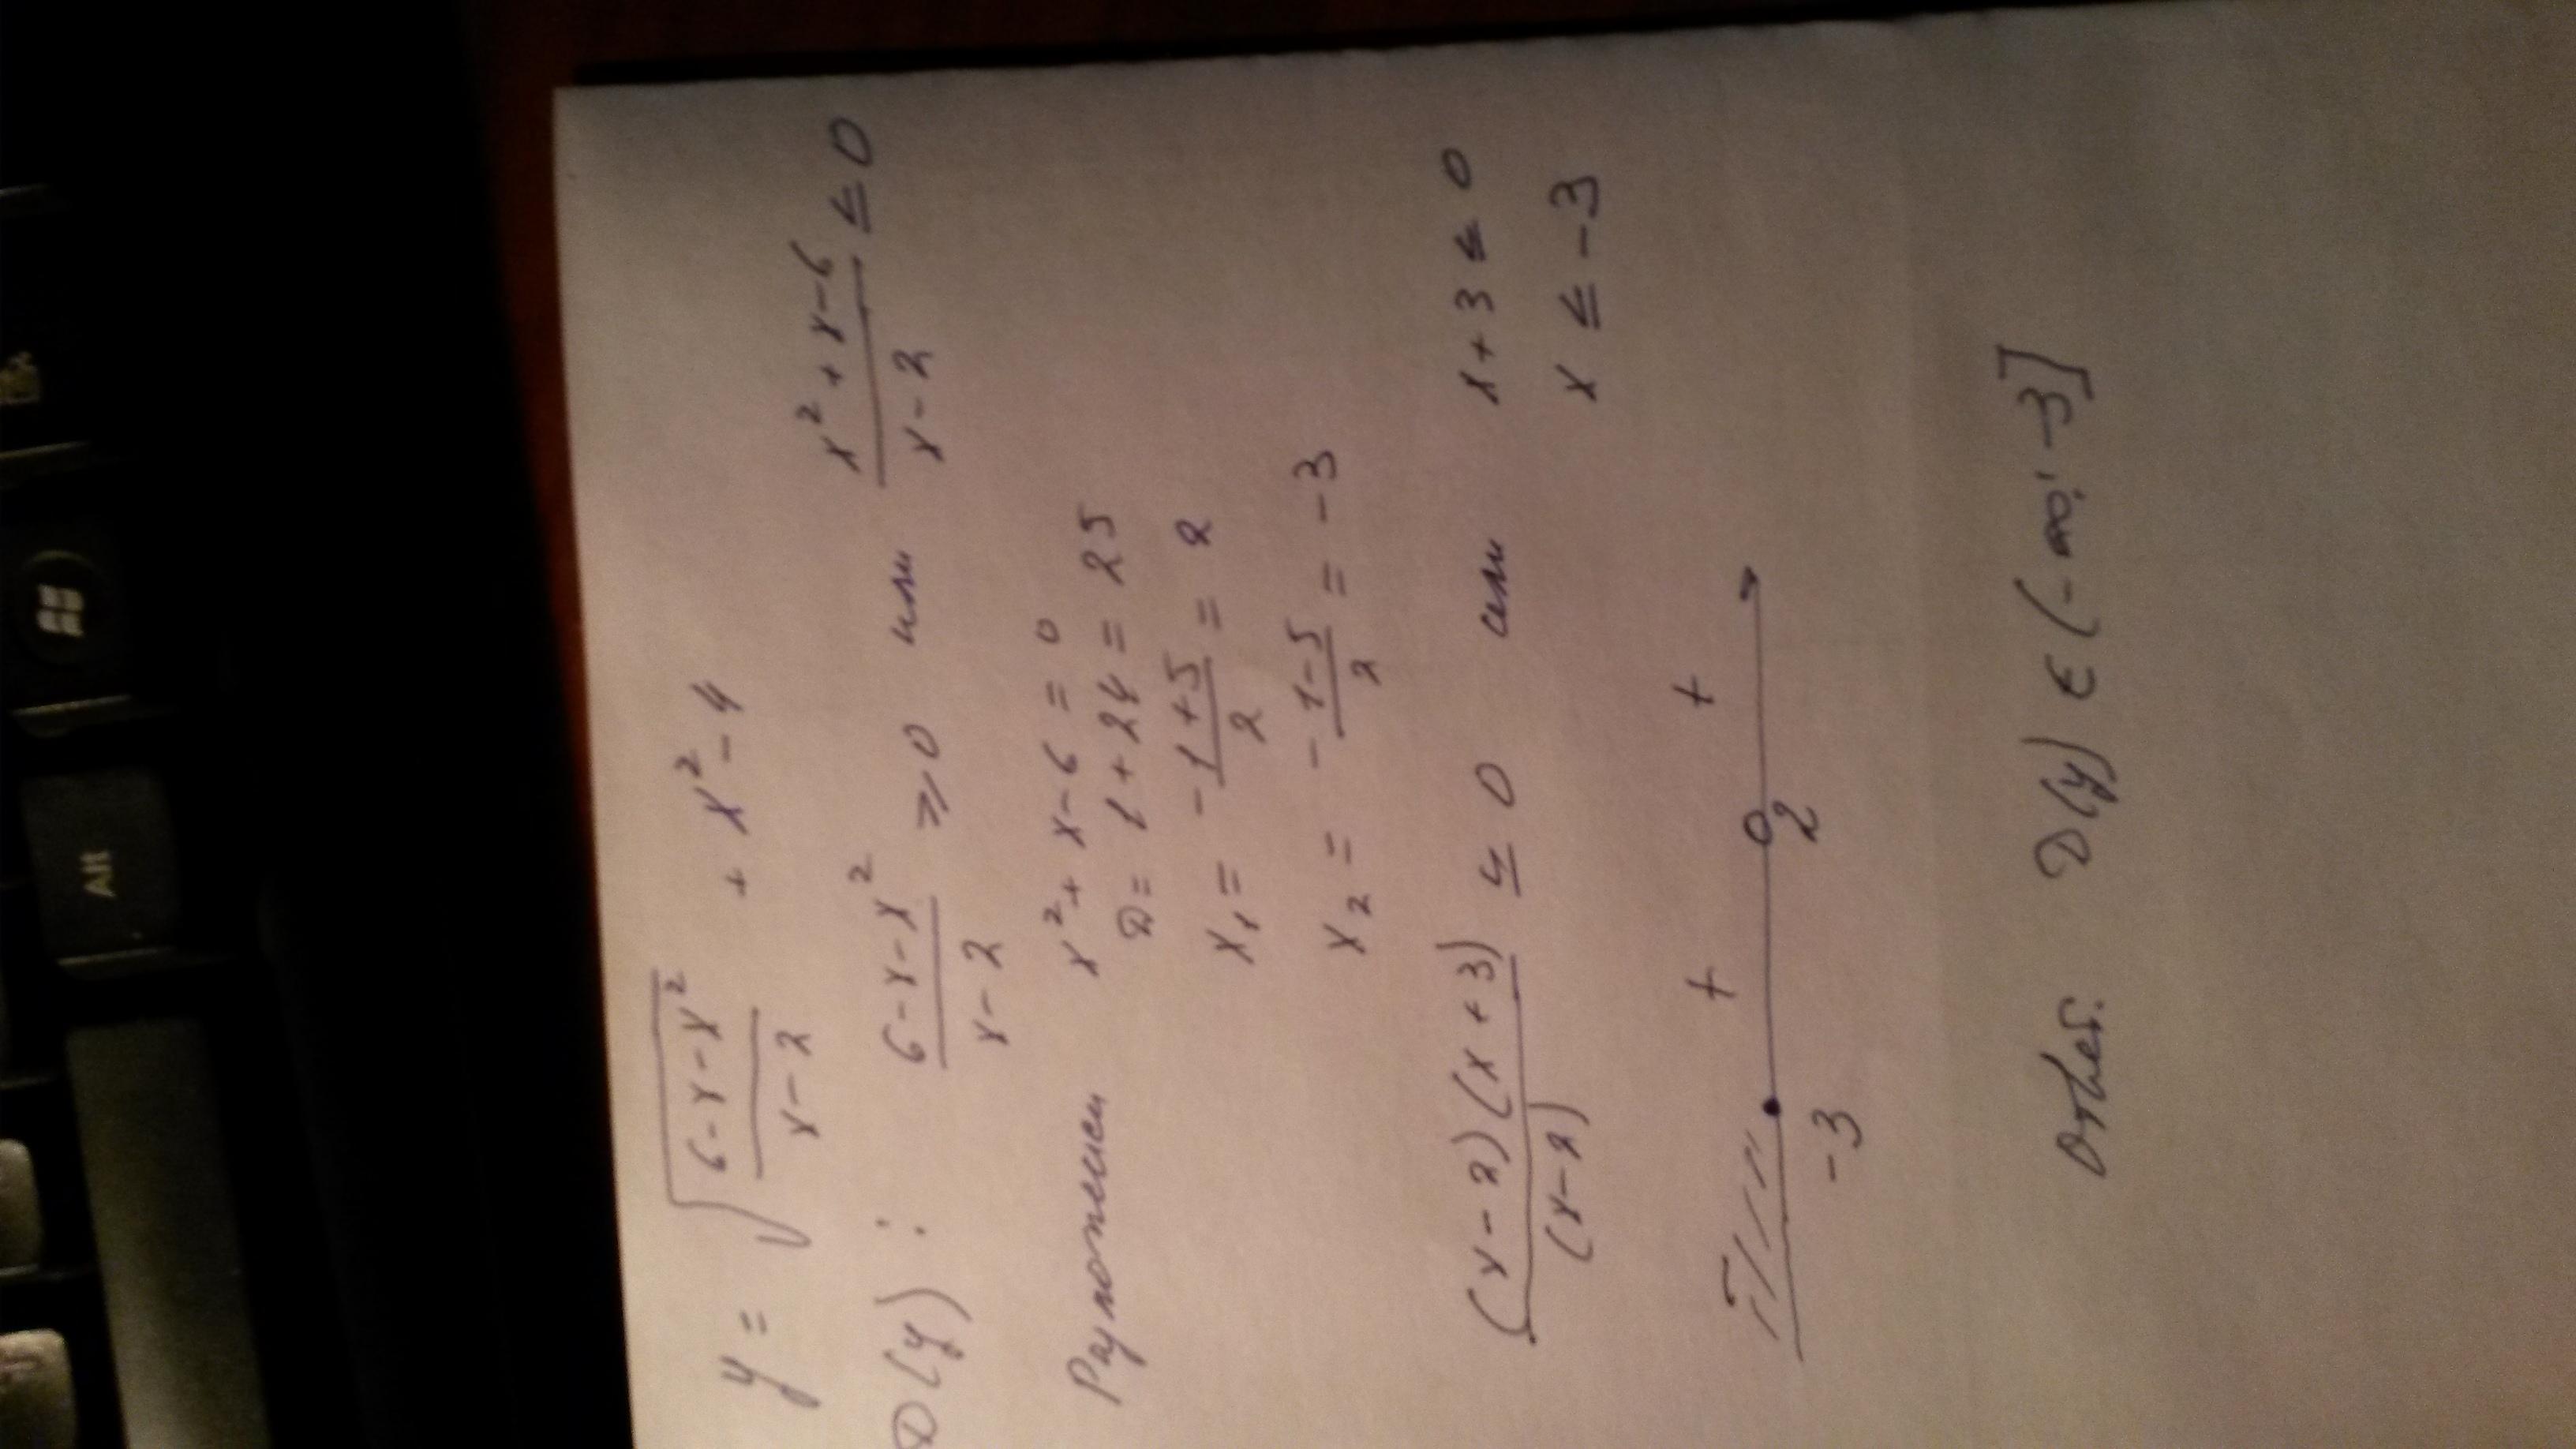 y = √((6-x-x²)/(x-2)) + x²-4
D(y): (6-x-x²)/(x-2) ≥ 0 или (x²+x-6)/(x-2) ≤ 0
Разложим x²+x-6=0
D = 1+24 = 25
x₁ = (-1+5)/2 = 2
x₂ = (-1-5)/2 = -3
((x-2)(x+3))/(x-2) ≤ 0 или x+3 ≤ 0
x ≤ -3
- + +
-3 2
Ответ: D(y) ∈ (-∞; -3]
Alt